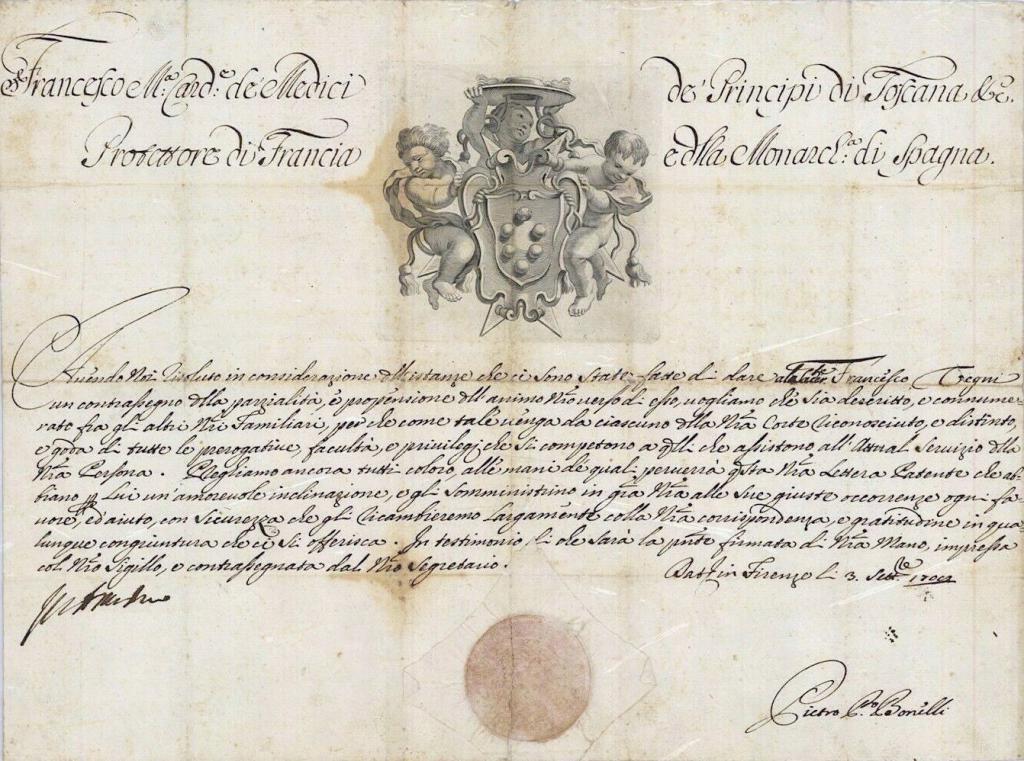 Francesco M.ª Card.ᵉ de Medici de' Principi di Toscana &c.
Protettore di Francia e dlla Monarch.ª di Spagna.
Avendo Noi risoluto in considerazione dell'istanze che ci sono state fatte di dare Francesco Tregni
un contrassegno dlla parzialità, e propensione dll'animo Nro verso di esso, vogliamo che sia descritto, e connume-
rato fra gli altri Nri Familiari, perche come tale venga da ciascuno dlla Nra Corte riconosciuto, e distinto,
e goda di tutte le prerogative, facultà, e privilegj che si competono a dlli che assistono all'Attual Servizio dlla
Nra Persona. Preghiamo ancora tutti coloro, alle mani de quali perverrà qsta Nra Lettera Patente che ab-
biano p Lui un'amorevole inclinazione, e gli somministrino in gra Nra alle sue giuste occorrenze ogni fa-
vore, ed'aiuto, con sicurezza che gli ricambieremo largamente colla Nra corrispondenza, e gratitudine in qua-
lunque congiuntura che ci si offerisca. In testimonio di che sarà la pnte firmata di Nra Mano, impressa
col Nro Sigillo, e contrassegnata dal Nro Segretario. Dat in Firenze li 3. Sett.ᵇʳᵉ
Pietro Bonelli